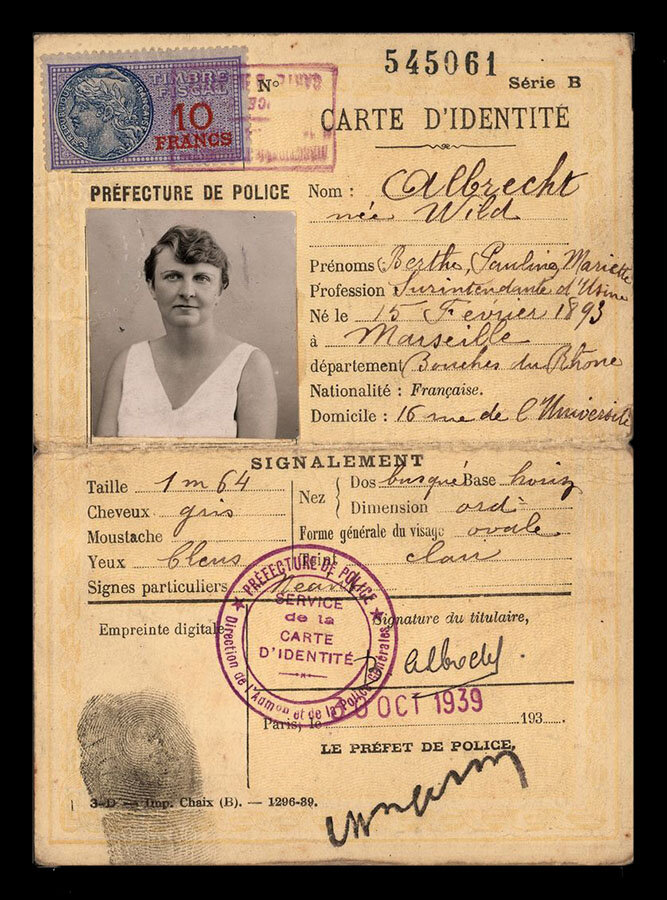 545061
TIMBRE FISCAL
10 FRANCS
RÉPUBLIQUE FRANÇAISE
N°
Série B
CARTE D'IDENTITÉ
PRÉFECTURE DE POLICE
Nom : Albrecht
née Wild
Prénoms Berthe, Pauline, Mariette
Profession Surintendante d'Usine
Né le 15 Février 1893
à Marseille
département Bouches du Rhône
Nationalité : Française.
Domicile : 16 rue de l'Université
SIGNALEMENT
Taille 1m64
Cheveux gris
Moustache
Yeux bleus
Signes particuliers Néant
Nez { Dos busqué Base horiz
Dimension ord
Forme générale du visage ovale
Teint clair
PRÉFECTURE DE POLICE
SERVICE
de la
CARTE
D'IDENTITÉ
Direction de l'Admon et de la Police Générales
Empreinte digitale
Signature du titulaire,
B Albrecht
Paris, le OCT 1939 193
LE PRÉFET DE POLICE,
3-D — Imp. Chaix (B). — 1296-39.